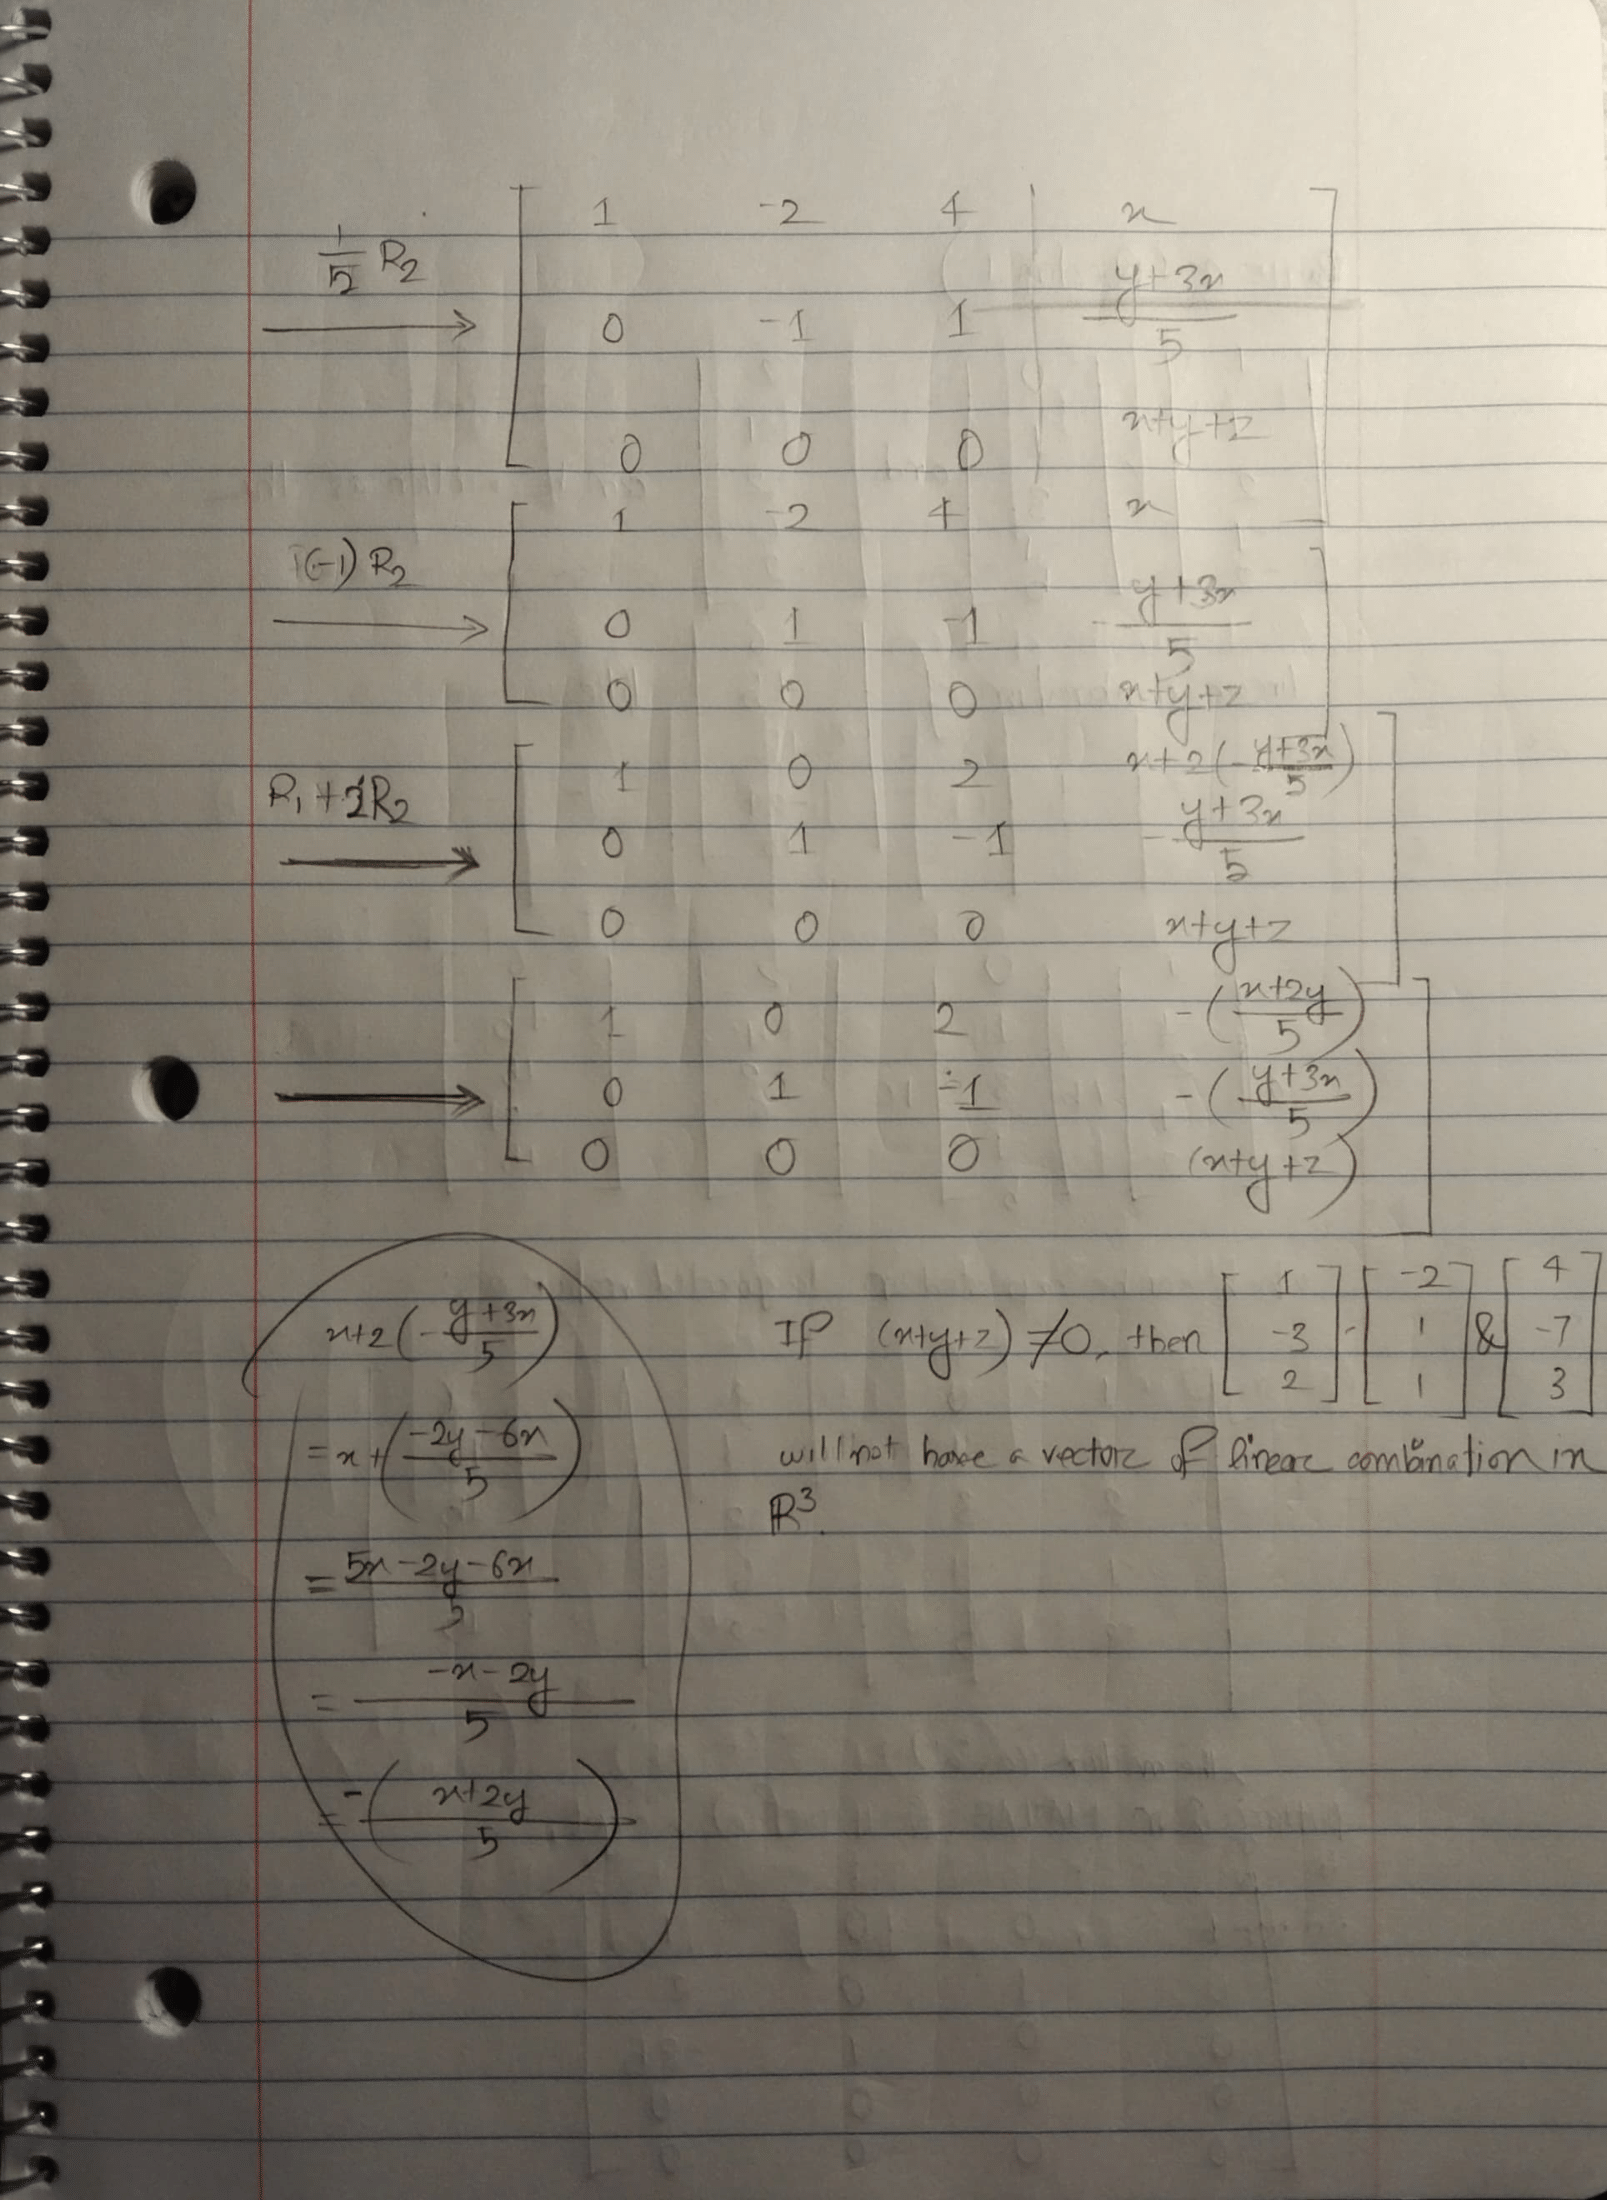 1/5 R₂ → [ 1 -2 4 | x ]
[ 0 -1 1 | (y+3x)/5 ]
[ 0 0 0 | x+y+z ]
(-1) R₂ → [ 1 -2 4 x ]
[ 0 1 -1 -(y+3x)/5 ]
[ 0 0 0 x+y+z ]
R₁+2R₂ → [ 1 0 2 x+2(-(y+3x)/5) ]
[ 0 1 -1 -(y+3x)/5 ]
[ 0 0 0 x+y+z ]
→ [ 1 0 2 -((x+2y)/5) ]
[ 0 1 -1 -((y+3x)/5) ]
[ 0 0 0 (x+y+z) ]
x+2(-(y+3x)/5)
= x+((-2y-6x)/5)
= (5x-2y-6x)/5
= (-x-2y)/5
= -((x+2y)/5)
If (x+y+z) ≠ 0, then [1 -3 2], [-2 1 1] & [4 -7 3]
will not have a vector of linear combination in
R³.